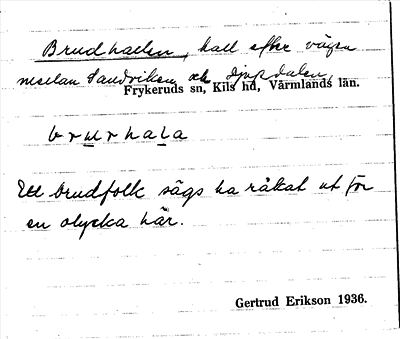 Brudhallen, hall efter vägen
mellan Sandviken och Djupdalen,
Frykeruds sn, Kils hd, Värmlands län.
Ett brudfolk sägs ha råkat ut för
en olycka här.
Gertrud Erikson 1936.